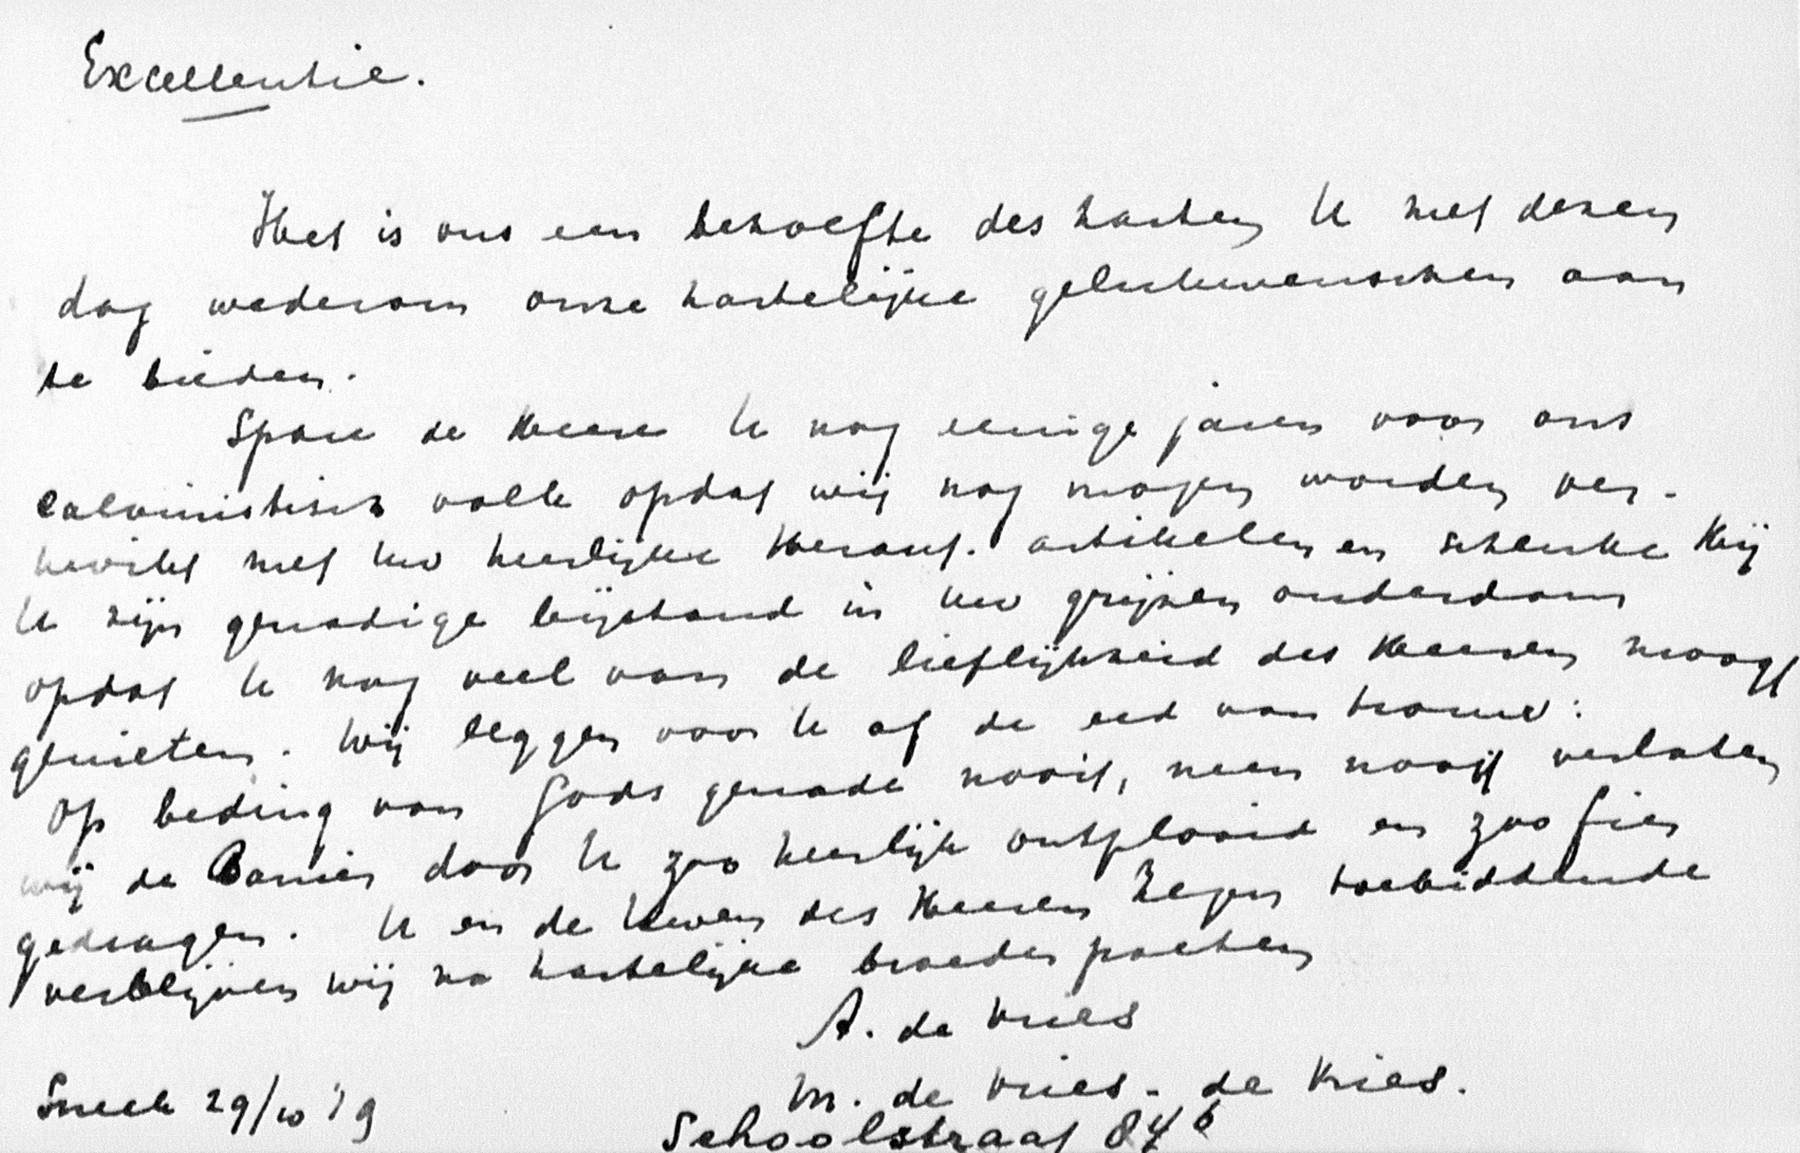 Excellentie.
Het is ons een behoefte des harten U met dezen
dag wederom onze hartelijke gelukwenschen aan
te bieden.
Spare de Heere U nog eenige jaren voor ons
calvinistisch volk opdat wij nog mogen worden ver-
kwikt met Uw heerlijke Heraut. artikelen en schenke Hij
U zijn genadige bijstand in Uw grijzen ouderdom
opdat U nog veel van de lieflijkheid des Heeren moogt
genieten. Wij leggen voor U af de eed van trouw:
Op beding van Gods genade nooit, neen nooit verlaten
wij de Banier door U zoo heerlijk ontplooid en zoo fier
gedragen. U en de Uwen des Heeren Zegen toebiddende
verblijven wij na hartelijke broedergroeten
A. de Vries
M. de Vries - de Vries.
Sneek 29/10 '19
Schoolstraat 84 b